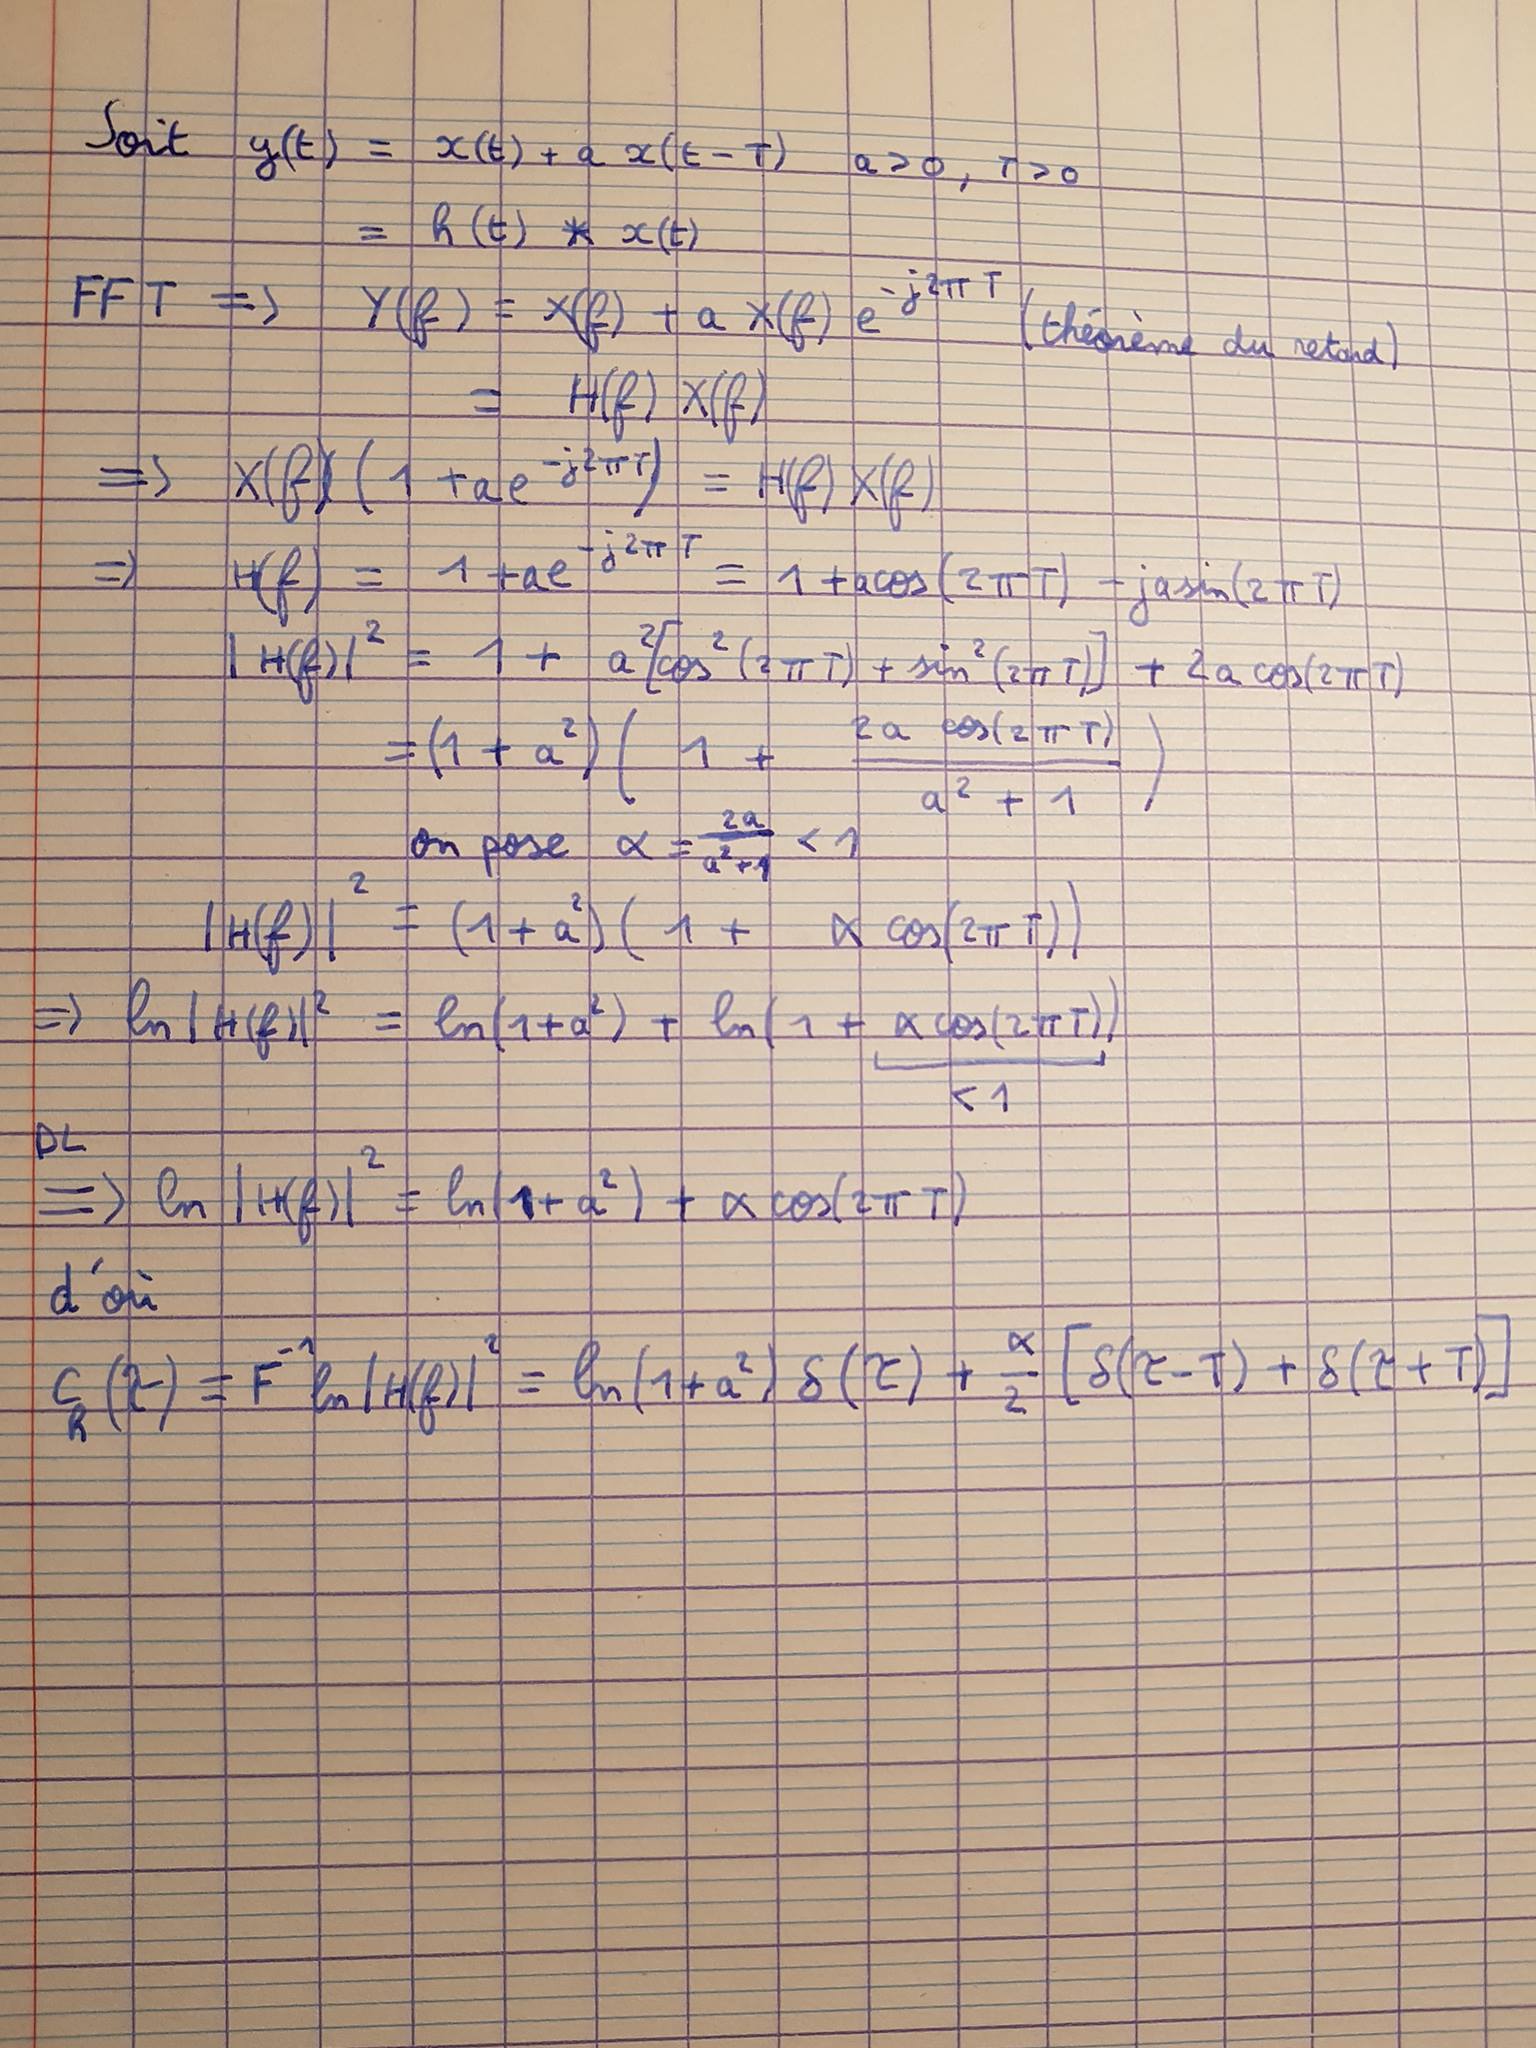 Soit y(t) = x(t) + a x(t-T) a>0, T>0
= h(t) * x(t)
FFT => Y(f) = X(f) + a X(f) e^{-j2πT} (théorème du retard)
= H(f) X(f)
=> X(f) (1 + ae^{-j2πT}) = H(f) X(f)
=> H(f) = 1 + ae^{-j2πT} = 1 + acos(2πT) - jasin(2πT)
|H(f)|² = 1 + a²[cos²(2πT) + sin²(2πT)] + 2a cos(2πT)
= (1 + a²) ( 1 + \frac{2a cos(2πT)}{a² + 1} )
on pose α = \frac{2a}{a²+1} < 1
|H(f)|² = (1 + a²) ( 1 + α cos(2πT))
=> ln |H(f)|² = ln(1+a²) + ln(1 + α cos(2πT))
< 1
DL
=> ln |H(f)|² = ln(1 + a²) + α cos(2πT)
d'où
C_h(τ) = F^{-1} ln |H(f)|² = ln(1+a²) δ(τ) + \frac{α}{2} [δ(τ-T) + δ(τ+T)]